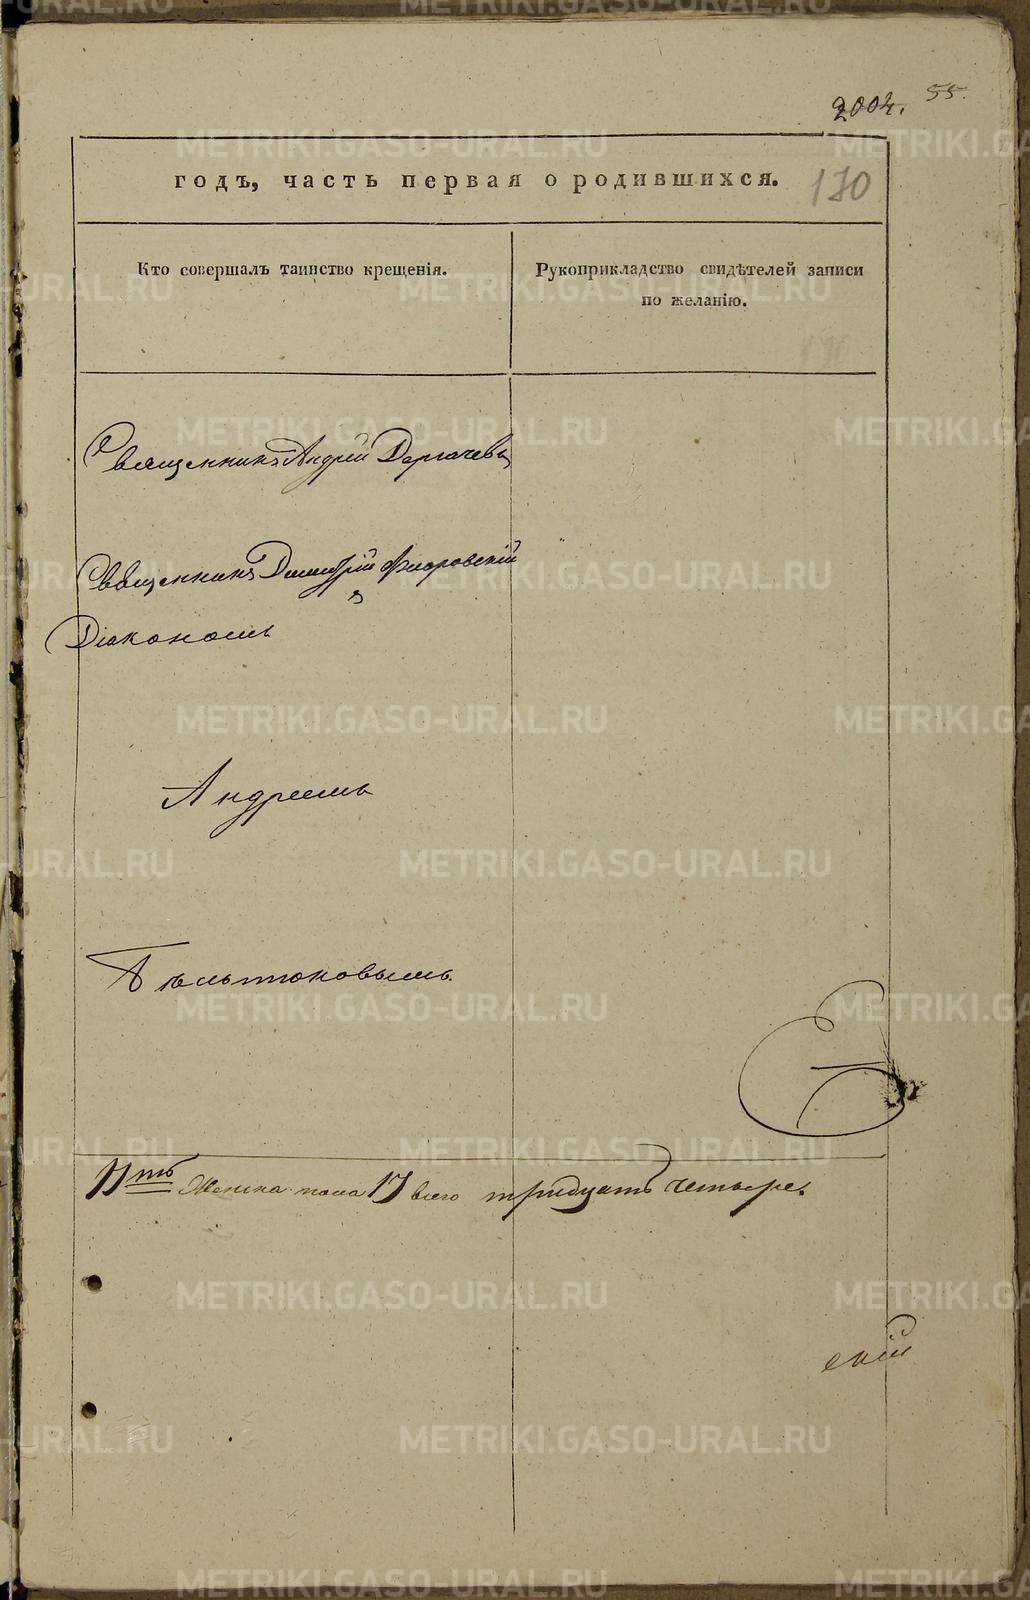 2004. 55.
годъ, часть первая о родившихся. 170
Кто совершалъ таинство крещенія.
Рукоприкладство свидѣтелей записи
по желанію.
Священникъ Андрей Дергачевъ
Священникъ Димитрій Флоровскій
съ
Діакономъ
Андреемъ
Бѣльтюковымъ.
17ть Женска пола 17 всего тридцать четыре.
скій
METRIKI.GASO-URAL.RU